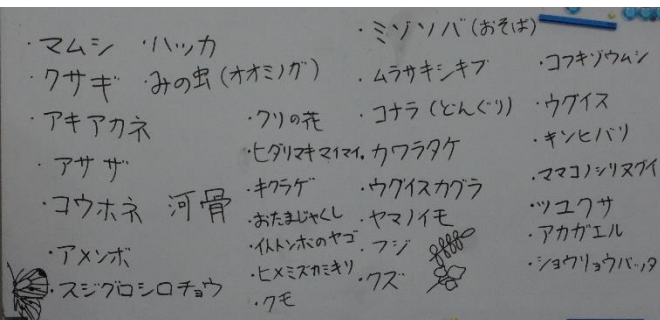 ・マムシ ・ハッカ
・クサギ ・みの虫(オオミノガ)
・アキアカネ
・アサザ
・コウホネ 河骨
・アメンボ
・スジグロシロチョウ
・クリの花
・ヒダリマキマイマイ
・キクラゲ
・おたまじゃくし
・イトトンボのヤゴ
・ヒメミズカミキリ
・クモ
・ミゾソバ(おそば)
・ムラサキシキブ
・コナラ(どんぐり)
・カワラタケ
・ウグイスカグラ
・ヤマノイモ
・フジ
・クズ
・コフキゾウムシ
・ウグイス
・キンヒバリ
・ママコノシリヌグイ
・ツユクサ
・アカガエル
・ショウリョウバッタ